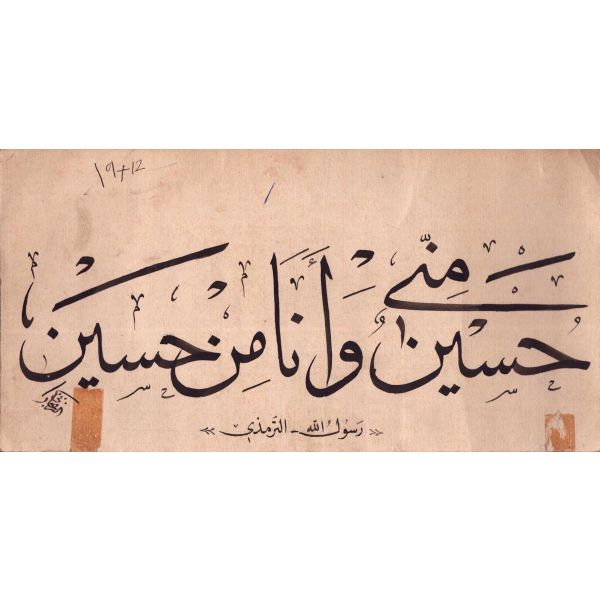 ١٩+١٢
حسينٌ منّي وأنا من حسين
« رسول الله - الترمذي »